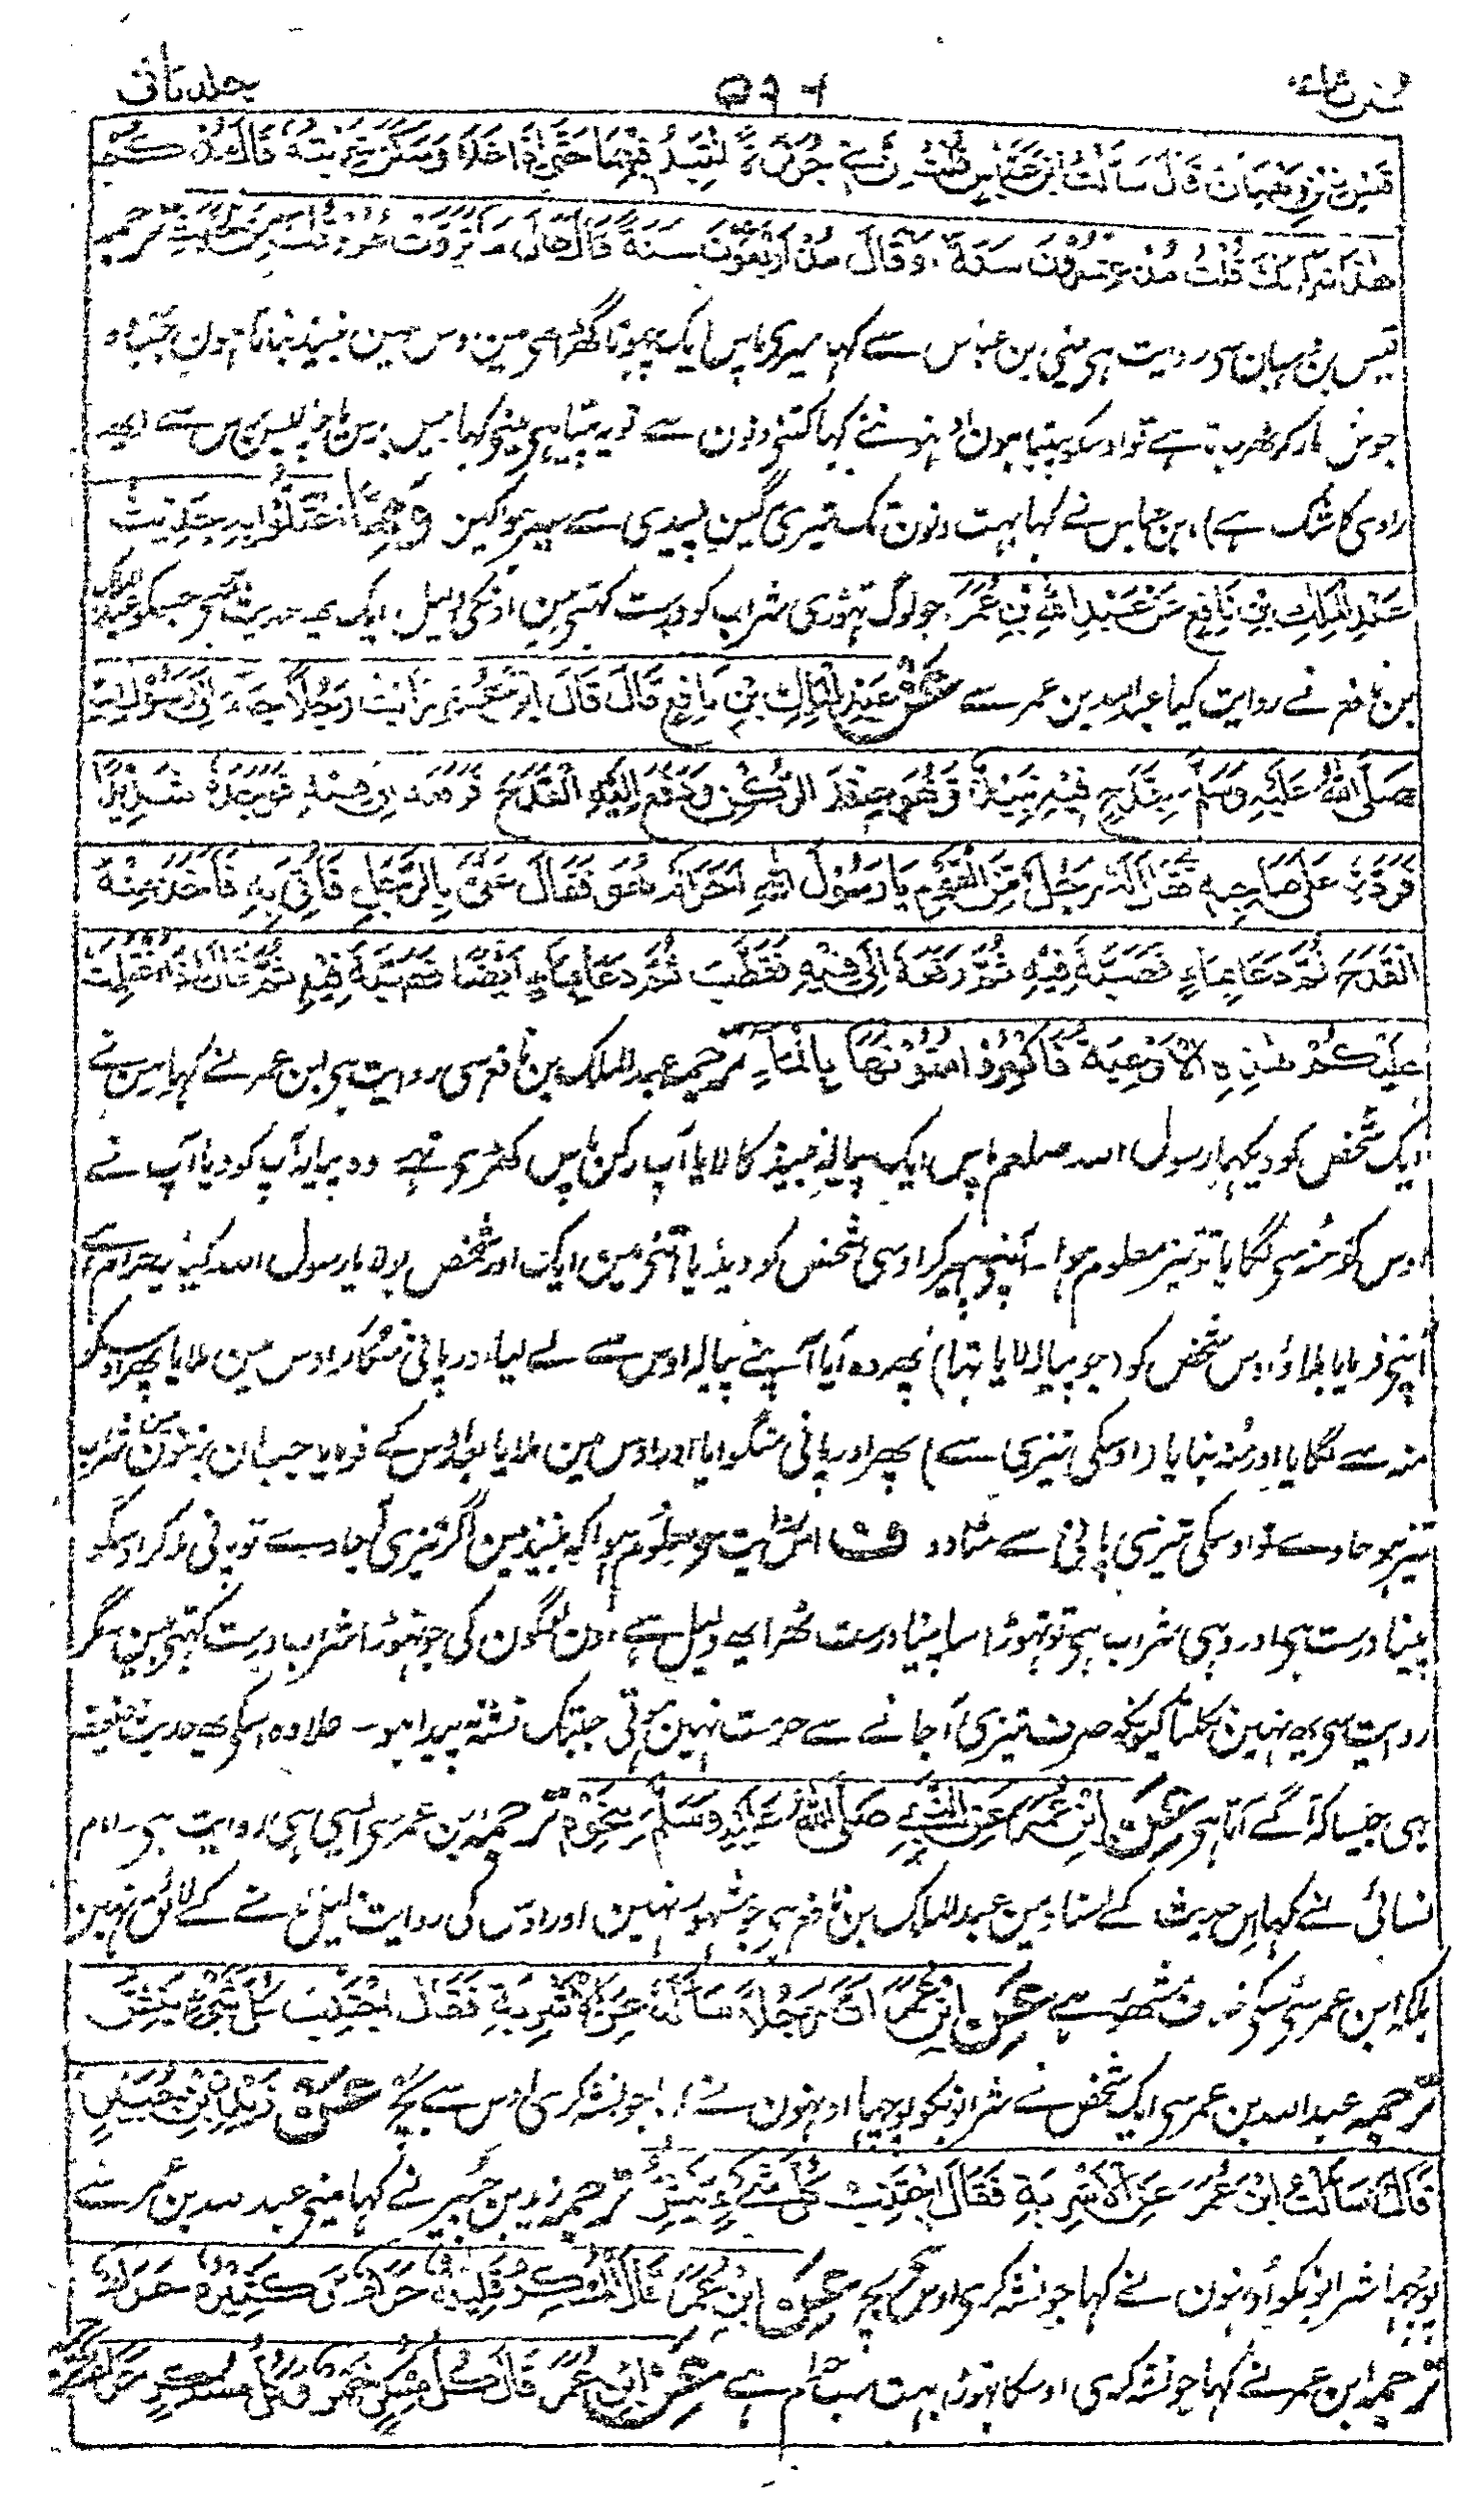 جلد ثانی ۵۹۶ سنن نسائی
قَيْسِ بْنِ وَهْبَانَ قَالَ سَأَلْتُ ابْنَ عَبَّاسٍ قُلْتُ إِنَّ لِيْ جُرَيْرَةً أَنْتَبِذُ فِيْهَا حَتّٰى إِذَا غَلَا وَسَكَنَ شَرِبْتُهُ قَالَ مُذْ كَمْ
هٰذَا شَرَابُكَ قُلْتُ مُذْ عِشْرُوْنَ سَنَةً وَقَالَ مُذْ أَرْبَعُوْنَ سَنَةً قَالَ طَالَ مَا تَرَوَّتْ عُرُوْقُكَ مِنَ الْخَبَثِ ترجمہ
قیس بن وہبان سے روایت ہی مینی بن عباس سے کہا میری پاس ایک چھوٹا گھڑا ہی مین اوس مین نبیذ بناتا ہون جب وہ
جوش مار کر ٹھرجاتا ہے تو اوسکو پیتا ہون اونہونے کہا کتنی دنون سے تو یہ پیتا ہی مینی کہا بیس برس یا چالیس برس سے یہ
راوی کا شک ہے) ابن عباس نے کہا بہت دنون تک تیری رگین پلیدی سے سیر ہوا کین وَمِمَّا اعْتَلُّوْا بِهِ حَدِيْثُ
عَبْدِ الْمَلِكِ بْنِ نَافِعٍ عَنْ عَبْدِ اللهِ بْنِ عُمَرَ جو لوگ تہوڑی شراب کو درست کہتی ہین اونکی دلیل ایک یہ حدیث ہی جسکو عبدالملک
بن نافع نے روایت کیا عبداللہ بن عمر سے عَنْ عَبْدِ الْمَلِكِ بْنِ نَافِعٍ قَالَ قَالَ ابْنُ عُمَرَ رَأَيْتُ رَجُلًا جَاءَ إِلٰى رَسُوْلِ اللهِ
صَلَّى اللهُ عَلَيْهِ وَسَلَّمَ بِقَدَحٍ فِيْهِ نَبِيْذٌ وَهُوَ عِنْدَ الرُّكْنِ وَدَفَعَ إِلَيْهِ الْقَدَحَ فَرَفَعَهُ إِلٰى فِيْهِ فَوَجَدَهُ شَدِيْدًا
فَرَدَّهُ عَلٰى صَاحِبِهِ فَقَالَ لَهُ رَجُلٌ مِنَ الْقَوْمِ يَا رَسُوْلَ اللهِ أَحَرَامٌ هُوَ فَقَالَ عَلَيَّ بِالرَّجُلِ فَأُتِيَ بِهِ فَأَخَذَ مِنْهُ
الْقَدَحَ ثُمَّ دَعَا بِمَاءٍ فَصَبَّهُ فِيْهِ ثُمَّ رَفَعَهُ إِلٰى فِيْهِ فَقَطَّبَ ثُمَّ دَعَا بِمَاءٍ أَيْضًا فَصَبَّهُ فِيْهِ ثُمَّ قَالَ إِذَا اغْتَلَمَتْ
عَلَيْكُمْ هٰذِهِ الْأَوْعِيَةُ فَاكْسِرُوْا مُتُوْنَهَا بِالْمَاءِ ترجمہ عبدالملک بن نافع سی روایت ہی ابن عمر نے کہا مین نے
ایک شخص کو دیکہا رسول اللہ صلعم پاس ایک پیالہ نبیذ کا لایا آپ رکن پاس کھڑی تھے وہ پیالہ آپ کو دیا آپ نے
اوس کو منہ سی لگایا تو تیز معلوم ہوا آپنی پھیر کر اوسی شخص کو دیدیا اتنی مین ایک اور شخص بولا یا رسول اللہ کیا یہ حرام ہے
آپنی فرمایا بلاؤ اوس شخص کو (جو پیالہ لایا تہا) پھر وہ آیا آپنے پیالہ اوس سے لے لیا اور پانی منگا کر اوس مین ملایا پھر اوسکو
منہ سے لگایا اور منہ بنایا (اوسکی تیزی سے) پھر اور پانی منگوایا اور اوس مین ملایا بعد اوس کے فرمایا جب ان برتنون مین شراب
تیز ہو جاوے تو اوسکی تیزی پانی سے مٹا دو ف اس روایت سی معلوم ہوا کہ نبیذ مین اگر تیزی آجاوے تو پانی ملا کر اوسکو
پینا درست ہی اور وہی شراب ہی تو تہوڑا سا پینا درست ٹھرا یہ دلیل ہے اون لوگون کی جو تہوڑا شراب درست کہتی ہین مگر
روایت سی یہ نہین نکلتا کیونکہ صرف تیزی آجانے سے حرمت نہین ہوتی جبتک نشہ پیدا نہو۔ علاوہ اسکی یہ حدیث ضعیف
ہی جیسا کہ آگے آتا ہی عَنِ ابْنِ عُمَرَ عَنِ النَّبِيِّ صَلَّى اللهُ عَلَيْهِ وَسَلَّمَ بِنَحْوِهِ ترجمہ ابن عمر سی ایسی ہی روایت ہی۔ امام
نسائی نے کہا اس حدیث کے اسناد مین عبدالملک بن نافع ہی جو مشہور نہین اور اوس کی روایت دلیل لانے کے لائق نہین
بلکہ ابن عمر سی اسکی خلاف مشہور ہے عَنِ ابْنِ عُمَرَ أَنَّ رَجُلًا سَأَلَهُ عَنِ الْأَشْرِبَةِ فَقَالَ اجْتَنِبْ كُلَّ شَيْءٍ يَنِشُّ
ترجمہ عبداللہ بن عمر سی ایک شخص نے شرابونکو پوچہا اونہون نے کہا جو نشہ کری اوس سے بچ عَنْ زَيْدِ بْنِ جُبَيْرٍ
قَالَ سَأَلْتُ ابْنَ عُمَرَ عَنِ الْأَشْرِبَةِ فَقَالَ اجْتَنِبْ كُلَّ شَيْءٍ يَنِشُّ ترجمہ زید بن جبیر نے کہا مینی عبداللہ بن عمر سے
پوچہا شرابونکو اونہون نے کہا جو نشہ کری اوس سی بچ عَنِ ابْنِ عُمَرَ قَالَ الْمُسْكِرُ قَلِيْلُهُ حَرَامٌ وَكَثِيْرُهُ حَرَامٌ
ترجمہ ابن عمر نے کہا جو نشہ کری اوسکا تہوڑا بہت سب حرام ہے عَنِ ابْنِ عُمَرَ قَالَ كُلُّ مُسْكِرٍ خَمْرٌ وَكُلُّ مُسْكِرٍ حَرَامٌ ترجمہ